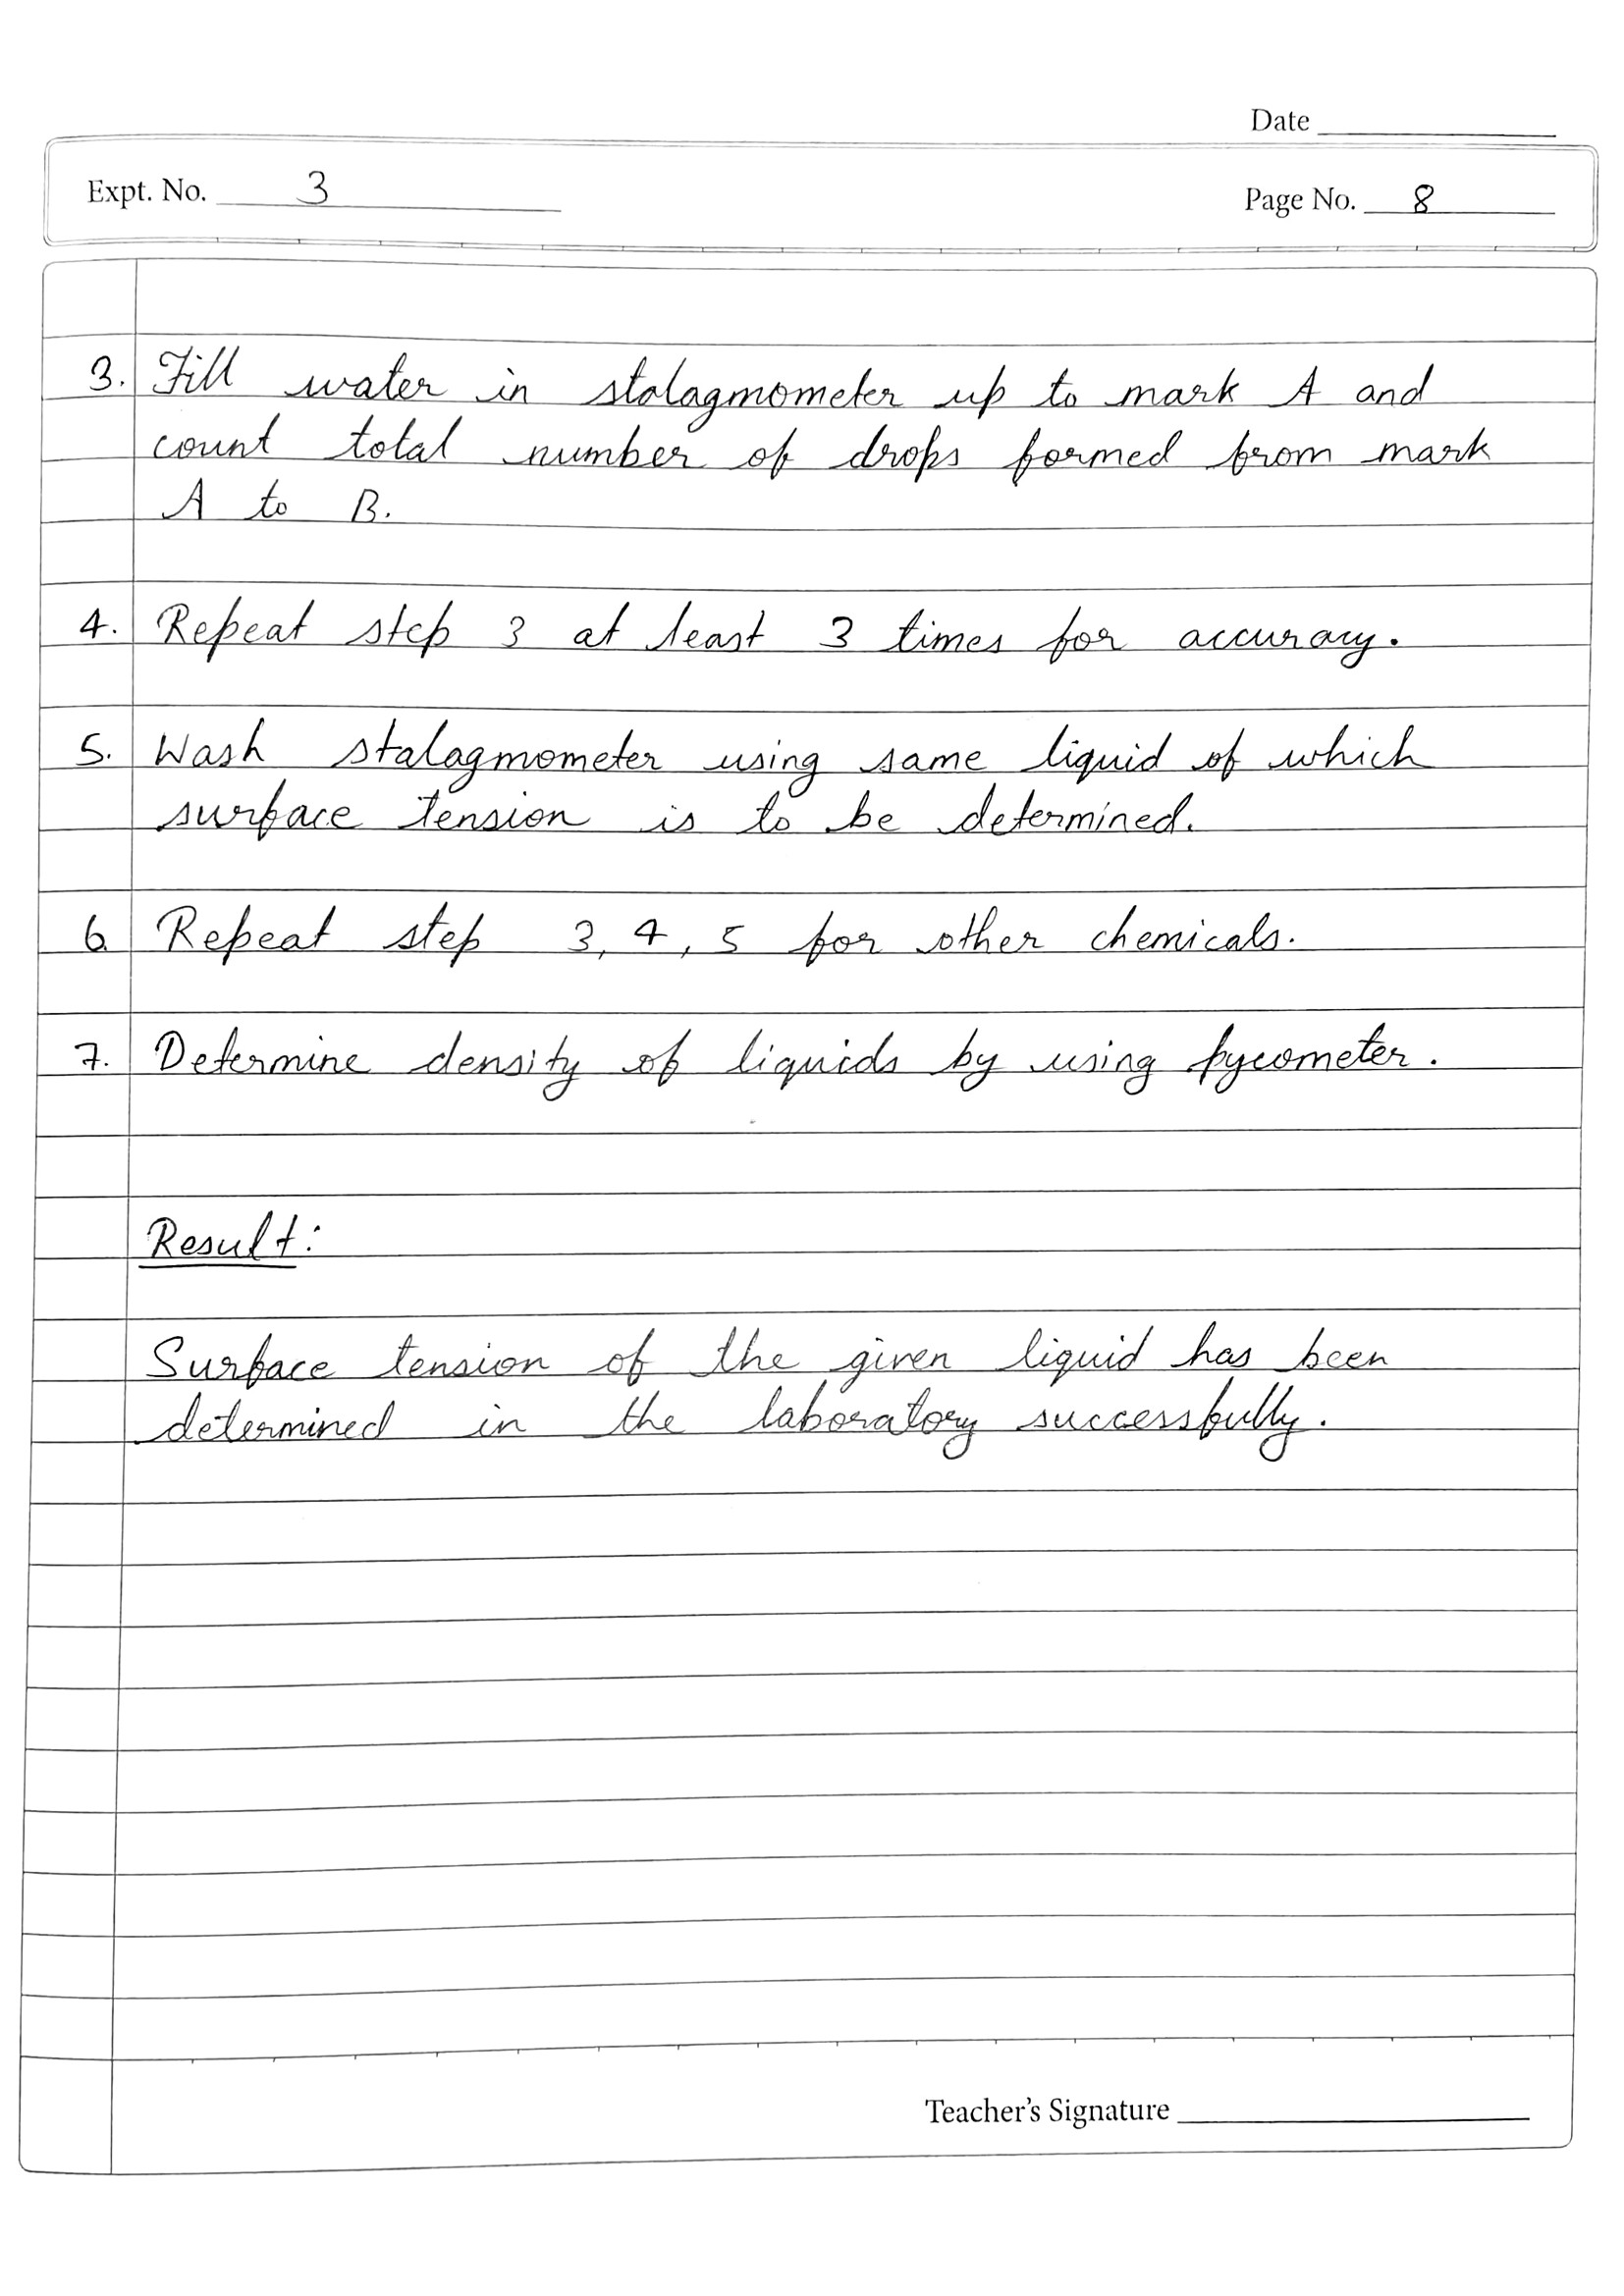 Date
Expt. No. 3
Page No. 8
3. Fill water in stalagmometer up to mark A and
count total number of drops formed from mark
A to B.
4. Repeat step 3 at least 3 times for accuracy.
5. Wash stalagmometer using same liquid of which
surface tension is to be determined.
6. Repeat step 3, 4, 5 for other chemicals.
7. Determine density of liquids by using pycometer.
Result:
Surface tension of the given liquid has been
determined in the laboratory successfully.
Teacher's Signature